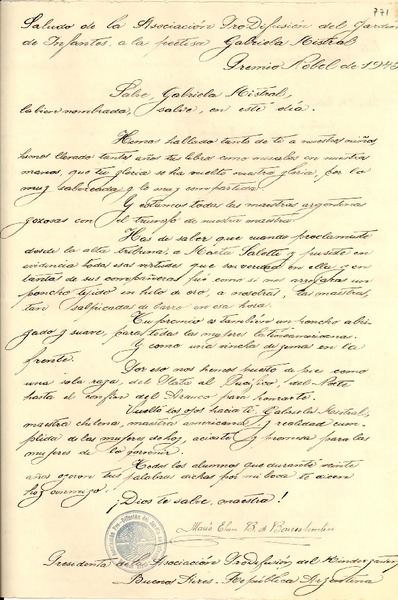 771
Saludo de la Asociación Pro Difusión del Jardín
de Infantes, a la poetisa Gabriela Mistral
Premio Nobel de 1945
Salve, Gabriela Mistral,
la bien nombrada, salve, en este día.
Hemos hablado tanto de ti a nuestros niños
hemos llevado tantos años tus libros como misales en nuestras
manos, que tu gloria se ha vuelto nuestra gloria, por lo
muy saboreada y lo muy compartida.
Y estamos todas las maestras argentinas
gozosas con el triunfo de nuestra maestra.
Has de saber que cuando proclamaste
desde la alta tribuna, a Marta Salotti y pusiste en
evidencia todas esas virtudes que son verdad en ella y en
tantas de sus compañeras fué como si nos arrojaras un
poncho tejido en hilo de oro, a nosotras, las maestras,
tan salpicadas de barro en esa hora.
Tu premio es también un poncho abri-
gado y suave, para todas las mujeres latinoamericanas.
Y como una vincha de gemas en la
frente.
Por eso nos hemos puesto de pie como
una sola raza, del Plata al Pacífico, del Norte
hasta el confín del Arauco para honrarte.
Vuelto los ojos hacia ti, Gabriela Mistral,
maestra chilena, maestra americana y realidad cum-
plida de las mujeres de hoy, aciate y promesa para las
mujeres de lo porvenir.
Todos los alumnos que durante veinte
años oyeron tus palabras dichas por mi boca te dicen
hoy conmigo:
¡Dios te salve, maestra!
María Elena B. de
Presidenta de la Asociación Pro Difusión del Kindergarten
Buenos Aires. República Argentina